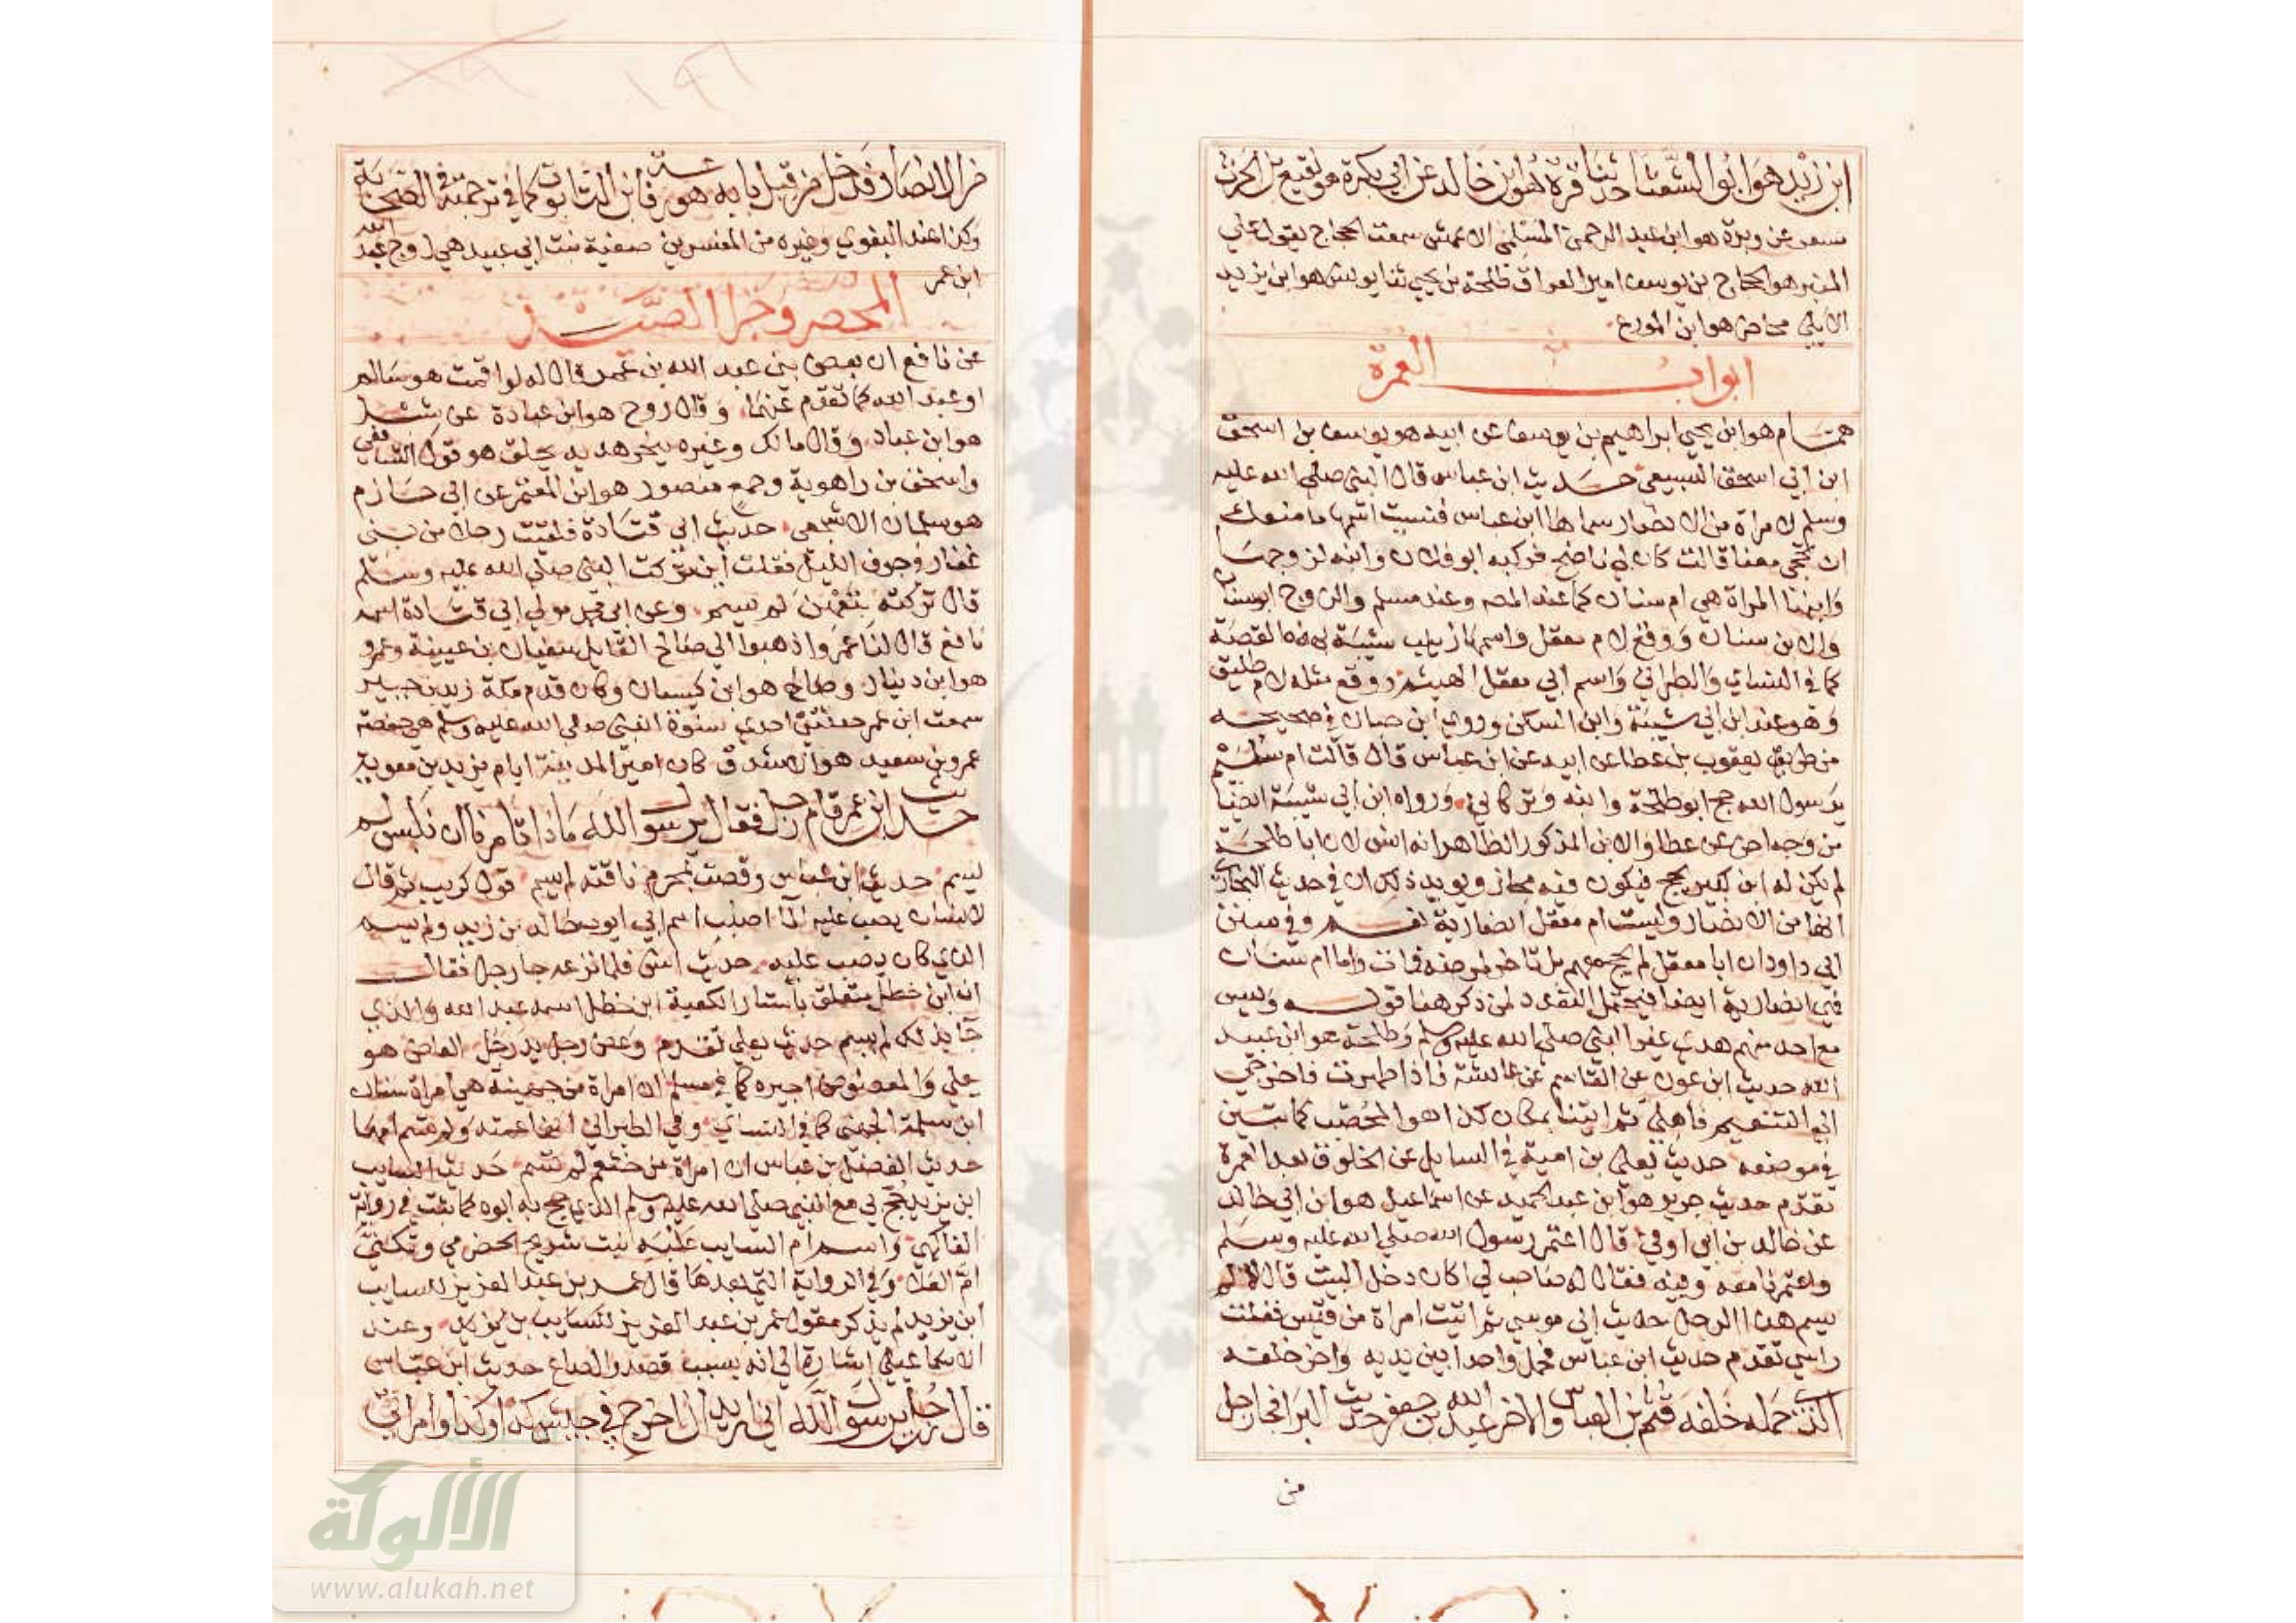 ابن زيد هو ابو الشعثا حدثنا قرة هو ابن خالد عن ابي بكرة هو نفيع بن الحرث
مسعر عن وبرة هو ابن عبد الرحمن المسلمي الاعمش سمعت الحجاج يقول على
المنبر هو الحجاج بن يوسف امير العراق طلحة بن يحيى ثنا يونس هو ابن يزيد
الايلي محاضر هو ابن المورع
ابواب العمرة
همام هو ابن يحيى ابراهيم بن يوسف عن ابيه هو يوسف بن اسحق
ابن ابي اسحق السبيعي حديث ابن عباس قال النبي صلى الله عليه
وسلم لامراة من الانصار سماها ابن عباس فنسيت اسمها ما منعك
ان تحجي معنا قالت كان لي ناضح فركبه ابو فلان وابنه لزوجها
وابنها المراة هي ام سنان كما عند المصـ وعند مسلم والزوج ابو سنان
والابن سنان ووقع لام معقل واسمها زينب شبيهة بهذه القصة
كما في النساي والطبراني واسم ابي معقل الهيثم ووقع مثله لام طليق
وهو عند ابن ابي شيبة وابن السكن وروى ابن حبان في صحيحه
من طريق يعقوب بن عطا عن ابيه عن ابن عباس قال قالت ام سليم
يرسول الله حج ابو طلحة وابنه وتركاني ورواه ابن ابي شيبة ايضا
من وجه اخر عن عطا والابن المذكور الظاهر انه انس لان ابا طلحة
لم يكن له ابن كبير يحج فيكون فيه مجاز ويويد ذلك ان في حديث البخاري
انها من الانصار وليست ام معقل انصارية نعم وفي سنن
ابي داود ان ابا معقل لم يحج معهم بل تاخر لمرضه فمات واما ام سنان
فهي انصارية ايضا فيحتمل التعدد لمن ذكر هنا قوله وليس
مع احد منهم هدي غير النبي صلى الله عليه وسلم وطلحة هو ابن عبيد
الله حديث ابن عون عن القاسم عن عائشة فاذا طهرت فاخرجي
الى التنعيم فاهلي ثم ايتنا بمكان كذا هو المحصب كما تبين
في موضعه حديث يعلى بن امية في السايل عن الخلوق بعد العمرة
تقدم حديث جرير هو ابن عبد الحميد عن اسماعيل هو ابن ابي خالد
عن خالد بن ابي اوفى قال اعتمر رسول الله صلى الله عليه وسلم
واعتمرنا معه وفيه فقال له صاحب لي اكان دخل البيت قال لا لم
يسم هذا الرجل حديث ابي موسى ثم اتيت امراة من قيس ففلت
راسي تقدم حديث ابن عباس فحمل واحدا بين يديه واخر خلفه
الذي حمله خلفه قثم بن العباس والاخر عبد الله بن جعفر حديث البرا فجا رجل
من
من الانصار فدخل من قبل بابه هو رفاعة بن التابوت كما في ترجمته في الصحابة
وكذا عند البغوي وغيره من المفسرين صفية بنت ابي عبيد هي زوج عبد الله
ابن عمر
المحصر وجزا الصيد
عن نافع ان بعض بني عبد الله بن عمر قال له لو اقمت هو سالم
او عبد الله كما تقدم عنهما وقال روح هو ابن عبادة عن شبل
هو ابن عباد وقال مالك وغيره ينحر هديه يحلق هو قول الشافعي
واسحق بن راهوية وجمع منصور هو ابن المعتمر عن ابي حازم
هو سلمان الاشجعي حديث ابي قتادة فلقيت رجلا من بني
غفار في جوف الليل فقلت اين تركت النبي صلى الله عليه وسلم
قال تركته بتعهن لم يسم وعن ابي محمد مولى ابي قتادة اسمه
نافع قال لنا عمرو اذهبوا الى صالح القايل سفيان بن عيينة وعمرو
هو ابن دينار وصالح هو ابن كيسان وكان قدم مكة زيد بن جبير
سمعت ابن عمر حدثتني احدى نسوة النبي صلى الله عليه وسلم هي حفصة
عمرو بن سعيد هو الاشدق كان امير المدينة ايام يزيد بن معوية
حديث ابن عمر قام رجل فقال يرسول الله ماذا تامرنا ان نلبس لم
يسم حديث ابن عباس وقصت بمحرم ناقته لم يسم قول كريب ثم قال
لانسان يصب عليه الما اصبب اسم ابي ايوب خالد بن زيد ولم يسم
الذي كان يصب عليه حديث انس فلما نزعه جا رجل فقال
ان ابن خطل متعلق باستار الكعبة ابن خطل اسمه عبد الله والذي
جا بذلك لم يسم حديث يعلى تقدم وعض رجل يد رجل العاض هو
يعلى والمعضوض اجيره كما في مسلم ان امراة من جهينة هي امراة سنان
ابن سلمة الجهني كما في النساي وفي الطبراني انها عمته ولم تسم امها
حديث الفضل بن عباس ان امراة من خثعم لم تسم حديث السايب
ابن يزيد حج بي مع النبي صلى الله عليه وسلم الذي حج به ابوه كما بينت في رواية
الفاكهي واسم ام السايب علية بنت شريح الحضرمي وتكنى
ام العلا وفي الرواية التي بعدها قال عمر بن عبد العزيز للسايب
ابن يزيد لم يذكر مقول عمر بن عبد العزيز للسايب بن يزيد وعند
الاسماعيلي اشارة الى انه بسبب قصة الصاع حديث ابن عباس
قال رجل يرسول الله اني اريد ان اخرج في جيش كذا وكذا وامراتي
الألوكة
www.alukah.net